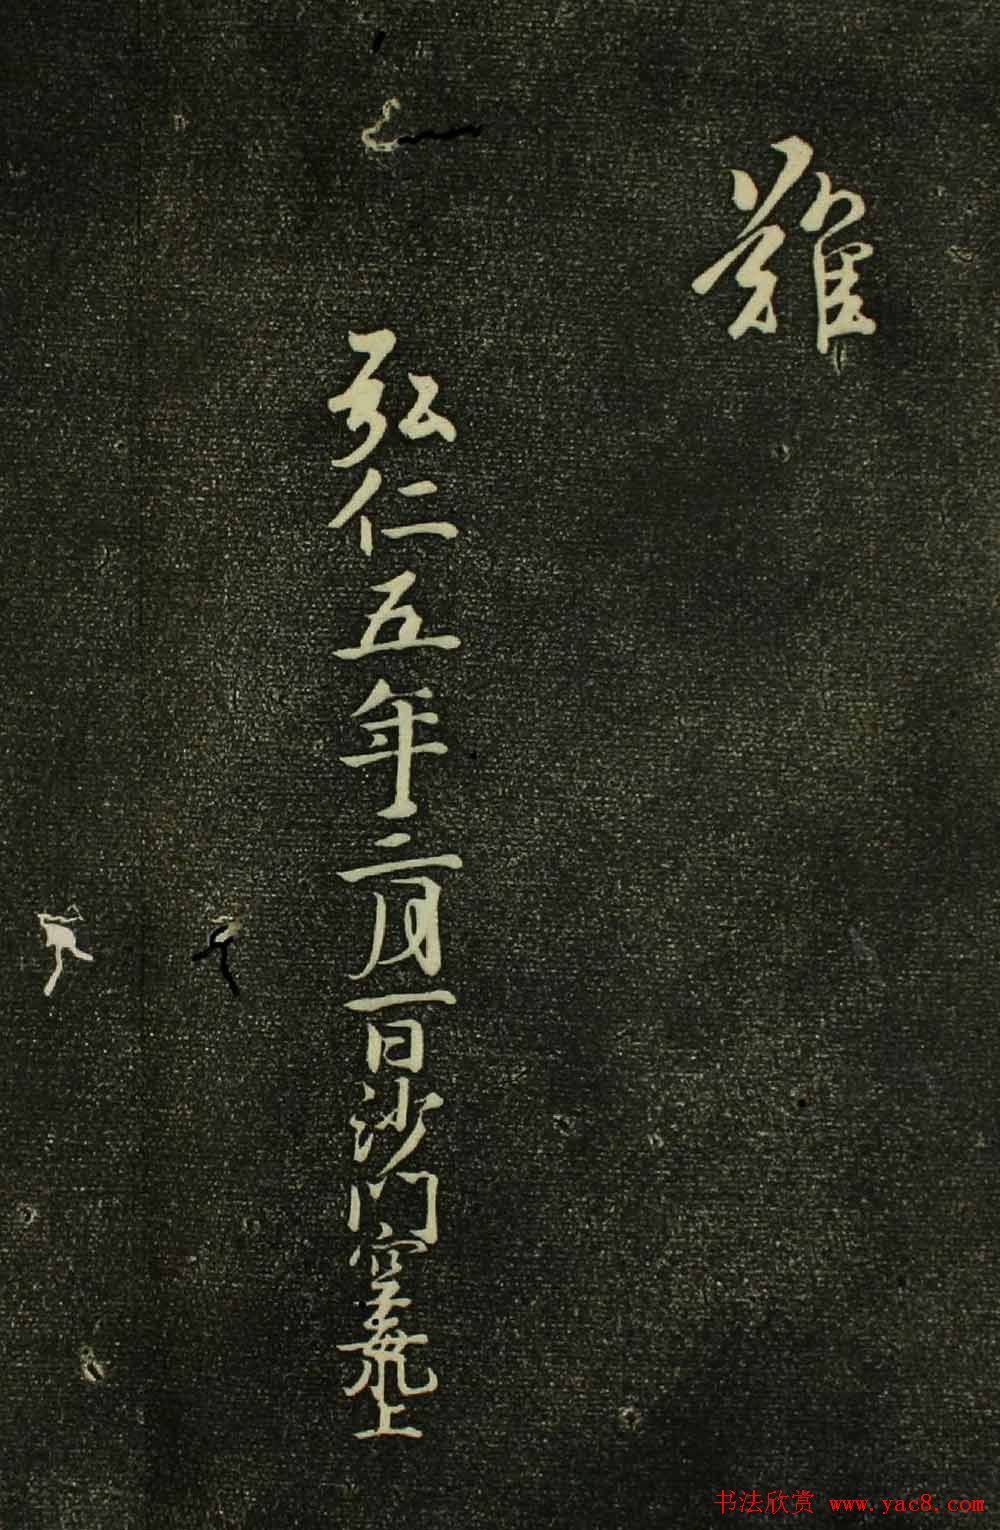 難
弘仁五年二月一日沙門空海上
书法欣赏 www.yac8.com